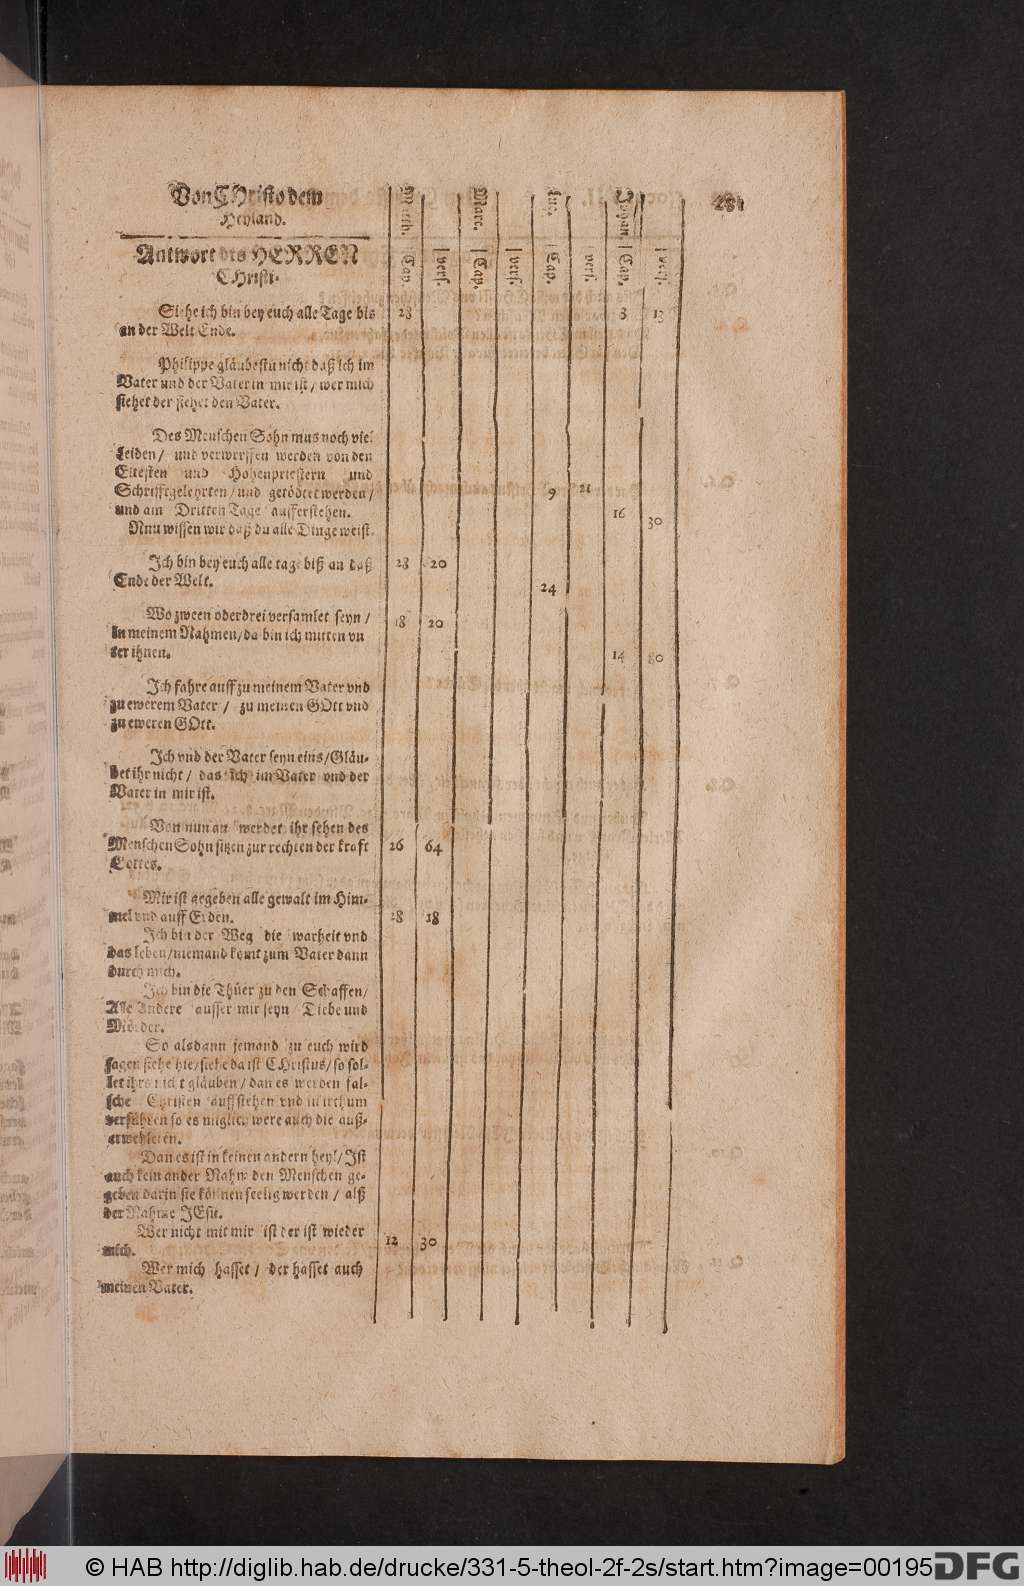 Von CHristo dem
Heyland.
Matth. Marc. Luc. Johan
281
Antwort des HERREN
CHristi.
Cap. vers. Cap. vers. Cap. vers. Cap. vers.
Siehe ich bin bey euch alle Tage bis 28 3 13
an der Welt Ende.
Philippe gläubestu nicht daß ich im
Vater und der Vater in mir ist / wer mich
siehet der siehet den Vater.
Des Menschen Sohn mus noch viel
Leiden / und verworffen werden von den
Eltesten und Hohenpriestern und
Schrifftgelehrten / und getödtet werden / 9 21
und am Dritten Tage aufferstehen. 16 30
Nnu wissen wir daß du alle Dinge weist.
Ich bin bey euch alle tage biß an daß 28 20
Ende der Welt. 24
Wo zween oder drei versamlet seyn / 18 20
In meinem Nahmen / da bin ich mitten vn
ter ihnen. 14 80
Ich fahre auff zu meinem Vater vnd
zu ewerem Vater / zu meinen GOtt vnd
zu eweren GOtt.
Ich vnd der Vater seyn eins / Gläu-
bet ihr nicht / das Ich im Vater vnd der
Vater in mir ist.
Von nun an werdet ihr sehen des
Menschen Sohn sitzen zur rechten der kraft 26 64
Gottes.
Mir ist gegeben alle gewalt im Him-
mel vnd auff Erden. 28 18
Ich bin der Weg die warheit vnd
das leben / niemand komt zum Vater dann
durch mich.
Ich bin die Thüer zu den Schaffen /
Alle Andere ausser mir seyn Diebe und
Mörder.
So alsdann jemand zu euch wird
sagen siehe hie / siehe da ist CHristus / so sol-
let ihrs nicht gläuben / dan es werden fal-
sche Christen auffstehen vnd in irthum
verführen so es müglich were auch die auß-
erwehleten.
Dan es ist in keinen andern heyl / Ist
auch kein ander Nahme den Menschen ge-
geben darin sie können seelig werden / alß
der Nahme JEsu.
Wer nicht mit mir ist der ist wieder 12 30
mich.
Wer mich hasset / der hasset auch
meinen Vater.
© HAB http://diglib.hab.de/drucke/331-5-theol-2f-2s/start.htm?image=00195
DFG